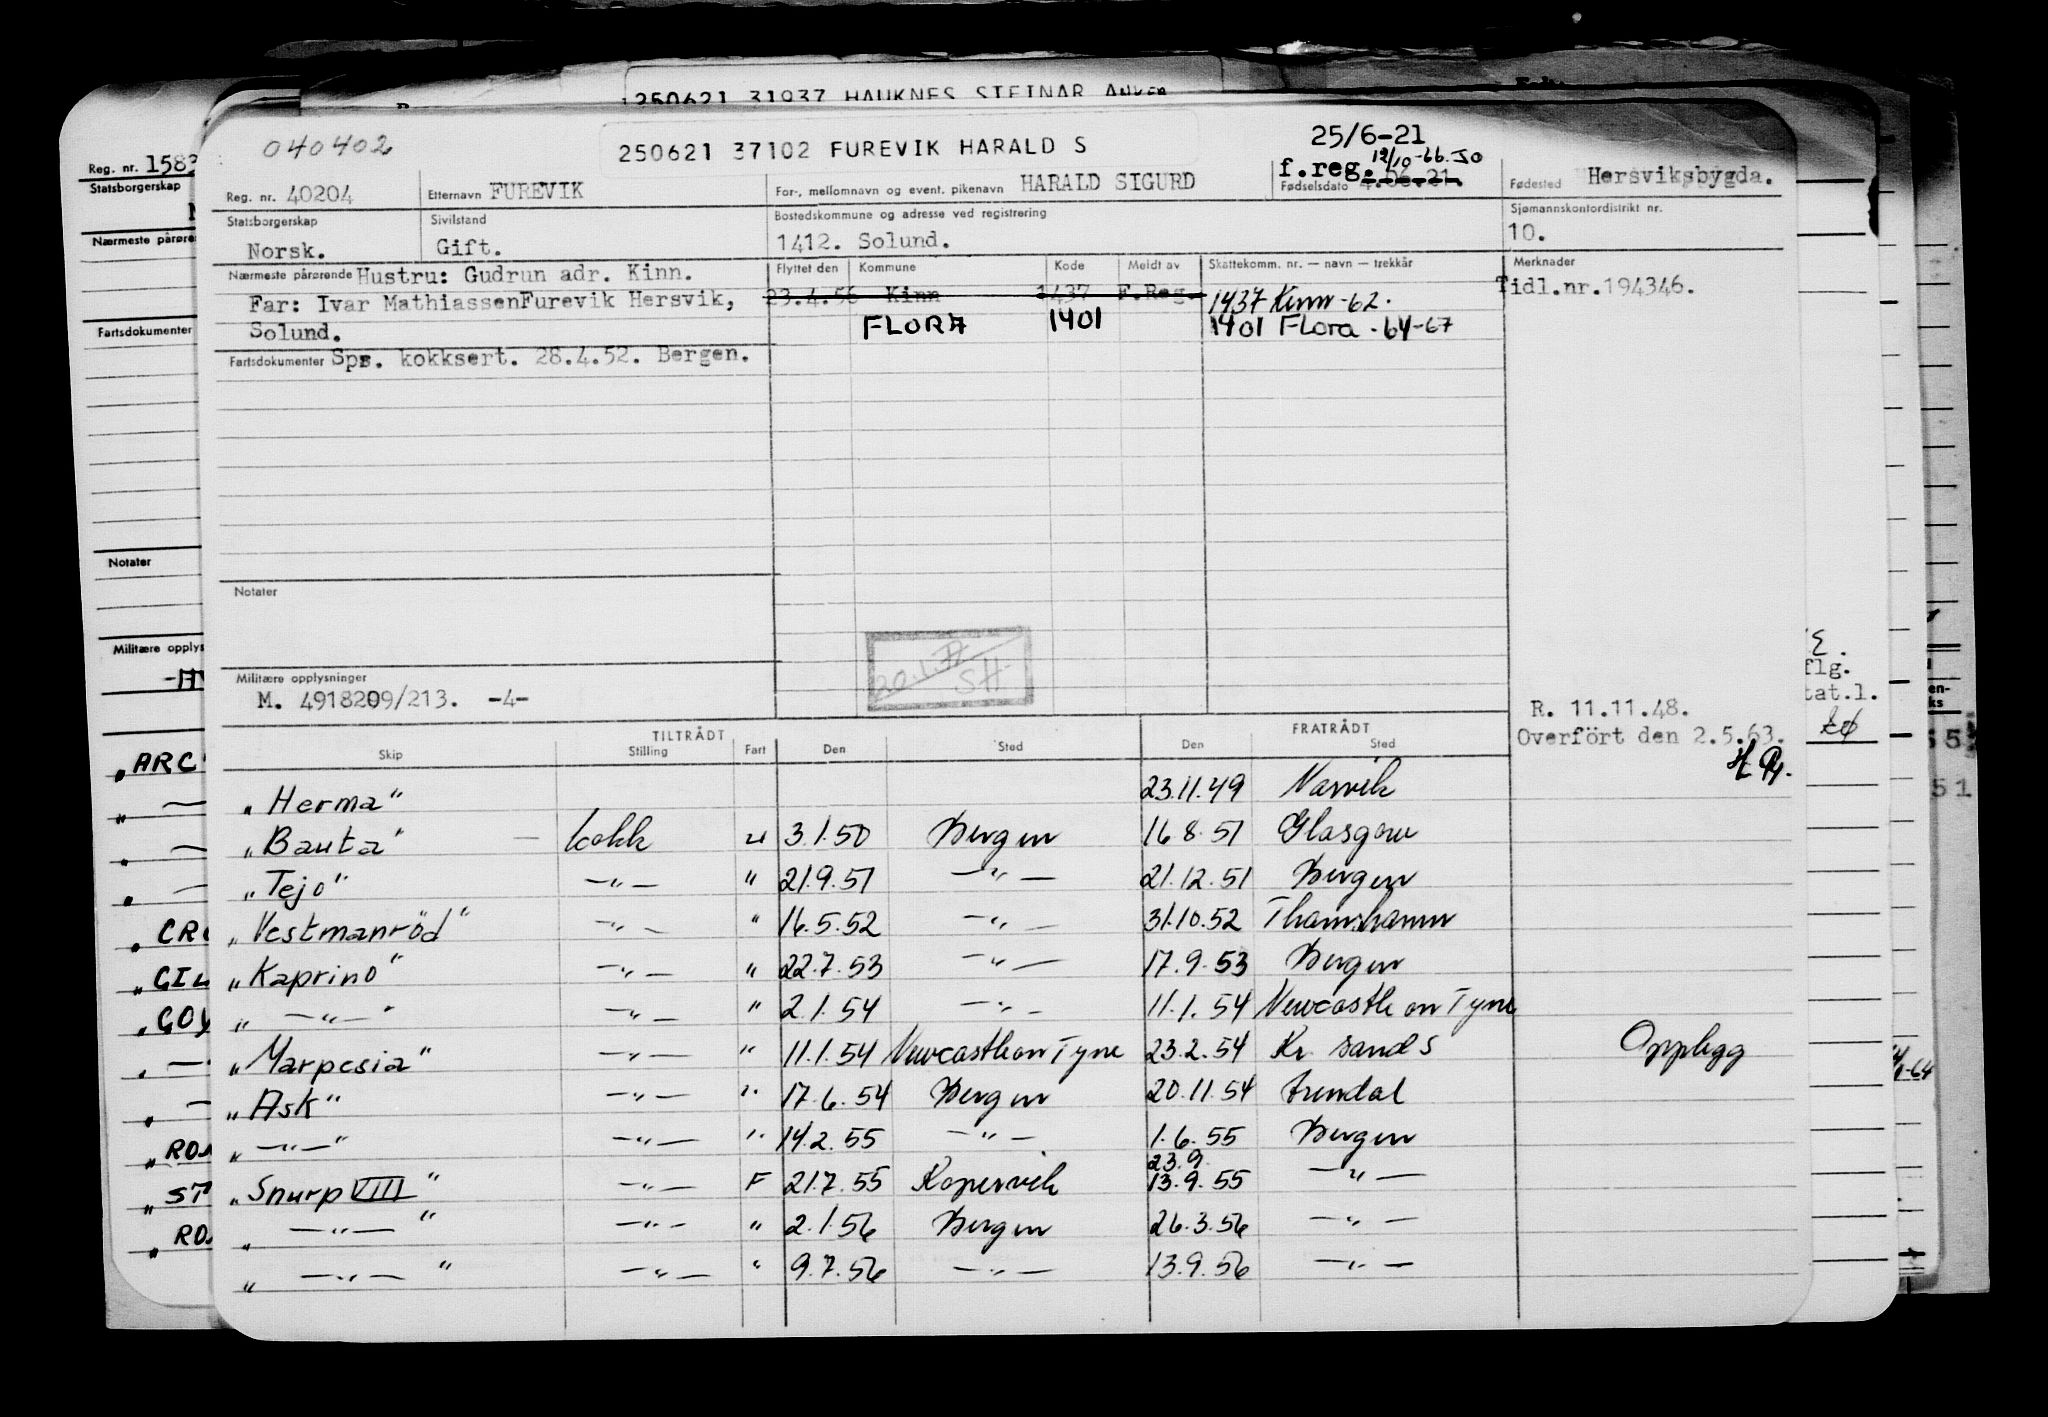 250621 31937 HAUKNES STEINAR ANKER
040402
250621 37102 FUREVIK HARALD S
25/6-21
f.reg. 12/10-66. JO
Reg. nr. 1583
Reg. nr. 40204 Etternavn FUREVIK For-, mellomnavn og event. pikenavn HARALD SIGURD Fødselsdato 4.06.21. Fødested Hersviksbygda.
Statsborgerskap
Statsborgerskap Sivilstand Bostedskommune og adresse ved registrering Sjømannskontordistrikt nr.
Norsk. Gift. 1412. Solund. 10.
Nærmeste pårøre
Nærmeste pårørende Hustru: Gudrun adr. Kinn. Flyttet den Kommune Kode Meldt av Skattekomm. nr. — navn — trekkår Merknader
Far: Ivar MathiassenFurevik Hersvik, 23.4.56 Kinn 1437 F.Reg. 1437 Kinn -62. Tidl.nr.194346.
Solund. FLORA 1401 1401 Flora . 64-67
Fartsdokumenter
Fartsdokumenter Sps. kokksert. 28.4.52. Bergen.
Notater
Notater
Militære opplys
Militære opplysninger
M. 4918209/213. -4-
SH
R. 11.11.48.
Overfört den 2.5.63.
flg.
tat.l.
TILTRÅDT FRATRÅDT
Skip Stilling Fart Den Sted Den Sted
„Herma" 23.11.49 Narvik
„Bauta" — kokk u 3.1.50 Bergen 16.8.51 Glasgow
„Tejo" —"— " 21.9.51 —"— 21.12.51 Bergen
„Vestmanröd" —"— " 16.5.52 —"— 31.10.52 Thamshamn
„Kaprino" —"— " 22.7.53 —"— 17.9.53 Bergen
„ —"— " —"— " 2.1.54 —"— 11.1.54 Newcastle on Tyne
„Marpesia" —"— " 11.1.54 Newcastle on Tyne 23.2.54 Kr. sand S Opplegg
„Ask" —"— " 17.6.54 Bergen 20.11.54 Arendal
„ —"— " —"— " 14.2.55 —"— 1.6.55 Bergen
23.9
„Snurp VIII" —"— F 21.7.55 Kopervik 13.9.55 —"—
„ —"— " —"— " 2.1.56 Bergen 26.3.56 —"—
„ —"— " —"— " 9.7.56 —"— 13.9.56 —"—